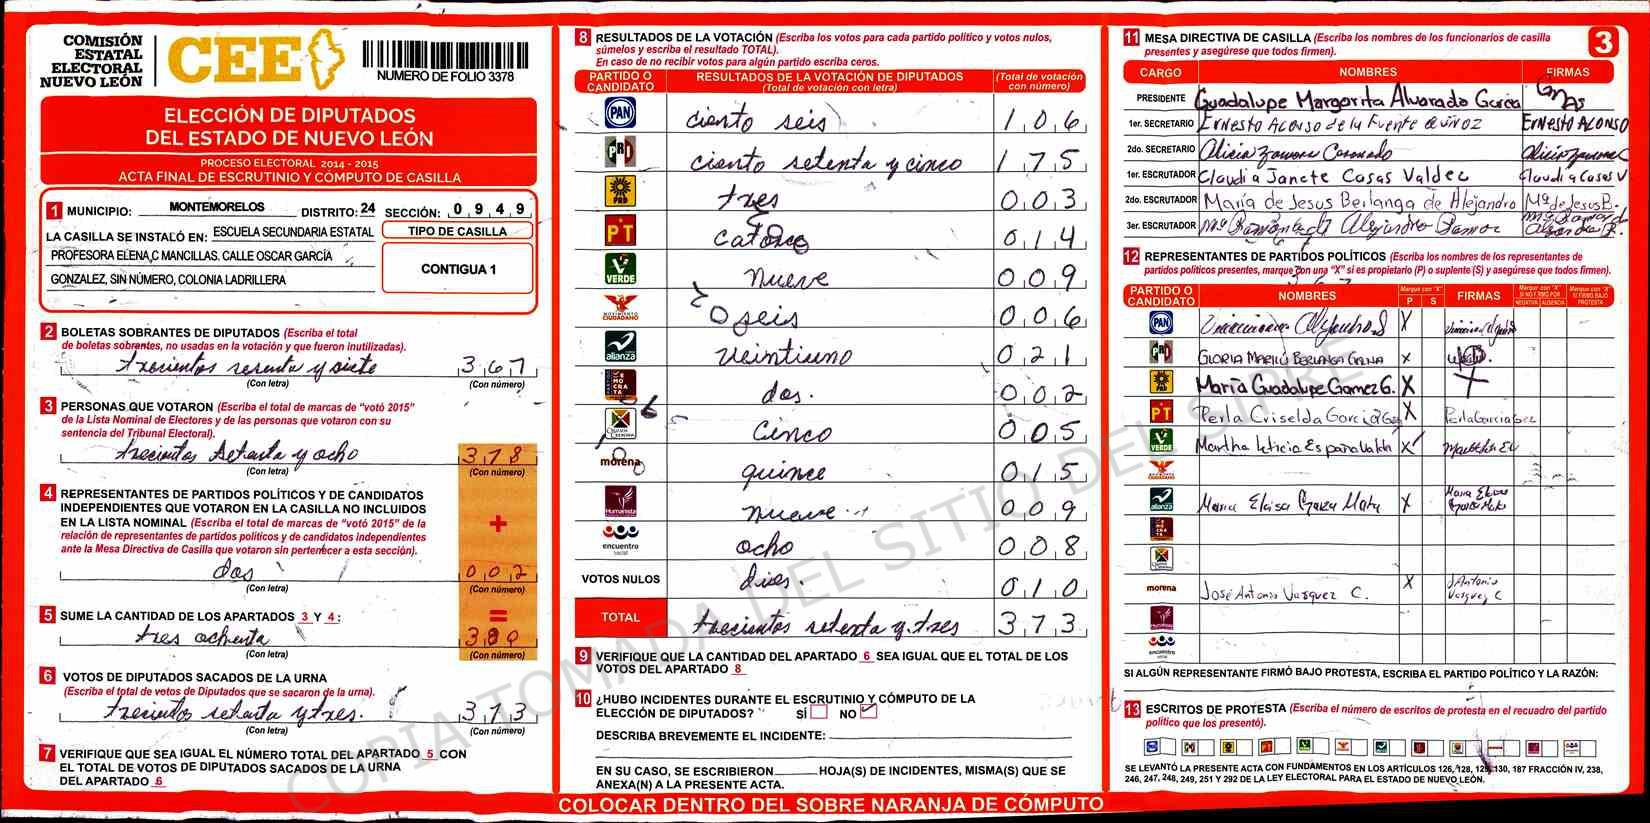 COMISIÓN
ESTATAL
ELECTORAL
NUEVO LEÓN
CEE
NUMERO DE FOLIO 3378
ELECCIÓN DE DIPUTADOS
DEL ESTADO DE NUEVO LEÓN
PROCESO ELECTORAL 2014 - 2015
ACTA FINAL DE ESCRUTINIO Y CÓMPUTO DE CASILLA
1 MUNICIPIO: MONTEMORELOS DISTRITO: 24 SECCIÓN: 0 9 4 9
LA CASILLA SE INSTALÓ EN: ESCUELA SECUNDARIA ESTATAL
PROFESORA ELENA,C MANCILLAS. CALLE OSCAR GARCÍA
GONZALEZ, SIN NÚMERO, COLONIA LADRILLERA
TIPO DE CASILLA
CONTIGUA 1
2 BOLETAS SOBRANTES DE DIPUTADOS (Escriba el total
de boletas sobrantes, no usadas en la votación y que fueron inutilizadas).
trecientos sesenta y siete 3 6 7
(Con letra) (Con número)
3 PERSONAS QUE VOTARON (Escriba el total de marcas de “votó 2015”
de la Lista Nominal de Electores y de las personas que votaron con su
sentencia del Tribunal Electoral).
trecientos setenta y ocho 3 7 8
(Con letra) (Con número)
4 REPRESENTANTES DE PARTIDOS POLÍTICOS Y DE CANDIDATOS
INDEPENDIENTES QUE VOTARON EN LA CASILLA NO INCLUIDOS
EN LA LISTA NOMINAL (Escriba el total de marcas de “votó 2015” de la
relación de representantes de partidos políticos y de candidatos independientes
ante la Mesa Directiva de Casilla que votaron sin pertenecer a esta sección).
+
dos 0 0 2
(Con letra) (Con número)
5 SUME LA CANTIDAD DE LOS APARTADOS 3 Y 4:
=
tres ochenta 3 8 0
(Con letra) (Con número)
6 VOTOS DE DIPUTADOS SACADOS DE LA URNA
(Escriba el total de votos de Diputados que se sacaron de la urna).
trecientos setenta y tres. 3 7 3
(Con letra) (Con número)
7 VERIFIQUE QUE SEA IGUAL EL NÚMERO TOTAL DEL APARTADO 5 CON
EL TOTAL DE VOTOS DE DIPUTADOS SACADOS DE LA URNA
DEL APARTADO 6
8 RESULTADOS DE LA VOTACIÓN (Escriba los votos para cada partido político y votos nulos,
súmelos y escriba el resultado TOTAL).
En caso de no recibir votos para algún partido escriba ceros.
PARTIDO O CANDIDATO RESULTADOS DE LA VOTACIÓN DE DIPUTADOS (Total de votación con letra) (Total de votación con número)
PAN ciento seis 1 0 6
PRD ciento setenta y cinco 1 7 5
PRD tres 0 0 3
PT catorce 0 1 4
VERDE nueve 0 0 9
MOVIMIENTO CIUDADANO seis 0 0 6
alianza veintiuno 0 2 1
DEMOCRATA dos. 0 0 2
CRUZADA CIUDADANA cinco 0 0 5
morena quince 0 1 5
Humanista nueve 0 0 9
encuentro social ocho 0 0 8
VOTOS NULOS dies. 0 1 0
TOTAL trecientos setenta y tres 3 7 3
9 VERIFIQUE QUE LA CANTIDAD DEL APARTADO 6 SEA IGUAL QUE EL TOTAL DE LOS
VOTOS DEL APARTADO 8
10 ¿HUBO INCIDENTES DURANTE EL ESCRUTINIO Y CÓMPUTO DE LA
ELECCIÓN DE DIPUTADOS? SÍ NO ✓
DESCRIBA BREVEMENTE EL INCIDENTE:
EN SU CASO, SE ESCRIBIERON HOJA(S) DE INCIDENTES, MISMA(S) QUE SE
ANEXA(N) A LA PRESENTE ACTA.
COLOCAR DENTRO DEL SOBRE NARANJA DE CÓMPUTO
11 MESA DIRECTIVA DE CASILLA (Escriba los nombres de los funcionarios de casilla
presentes y asegúrese que todos firmen).
3
CARGO NOMBRES FIRMAS
PRESIDENTE Guadalupe Margarita Alvarado Garcia
1er. SECRETARIO Ernesto Alonso de la Fuente Quiroz Ernesto Alonso
2do. SECRETARIO Alicia Zamora Coronado Alicia Zamora C
1er. ESCRUTADOR Claudia Janete Casas Valdez Claudia Casas V
2do. ESCRUTADOR María de Jesus Berlanga de Alejandro Mª de Jesus B.
3er. ESCRUTADOR
12 REPRESENTANTES DE PARTIDOS POLÍTICOS (Escriba los nombres de los representantes de
partidos políticos presentes, marque con una “X” si es propietario (P) o suplente (S) y asegúrese que todos firmen).
PARTIDO O CANDIDATO NOMBRES Marque con “X” P S FIRMAS Marque con “X” SI NO FIRMO POR NEGATIVA AUSENCIA Marque con “X” SI FIRMO BAJO PROTESTA
PAN X
PRD GLORIA MARIÚ BERLANGA X
PRD María Guadalupe Gomez G. X
PT Perla Criselda Garcia X Perla Garcia
VERDE Martha Leticia España X
MOVIMIENTO CIUDADANO
alianza Maria Elisa Garza Mata X
morena José Antonio Vazquez C. X J Antonio Vazquez C
encuentro social
SI ALGÚN REPRESENTANTE FIRMÓ BAJO PROTESTA, ESCRIBA EL PARTIDO POLÍTICO Y LA RAZÓN:
13 ESCRITOS DE PROTESTA (Escriba el número de escritos de protesta en el recuadro del partido
político que los presentó).
SE LEVANTÓ LA PRESENTE ACTA CON FUNDAMENTOS EN LOS ARTÍCULOS 126, 128, 129, 130, 187 FRACCIÓN IV, 238,
246, 247, 248, 249, 251 Y 292 DE LA LEY ELECTORAL PARA EL ESTADO DE NUEVO LEÓN.
COPIA TOMADA DEL SITIO DEL SIPRE